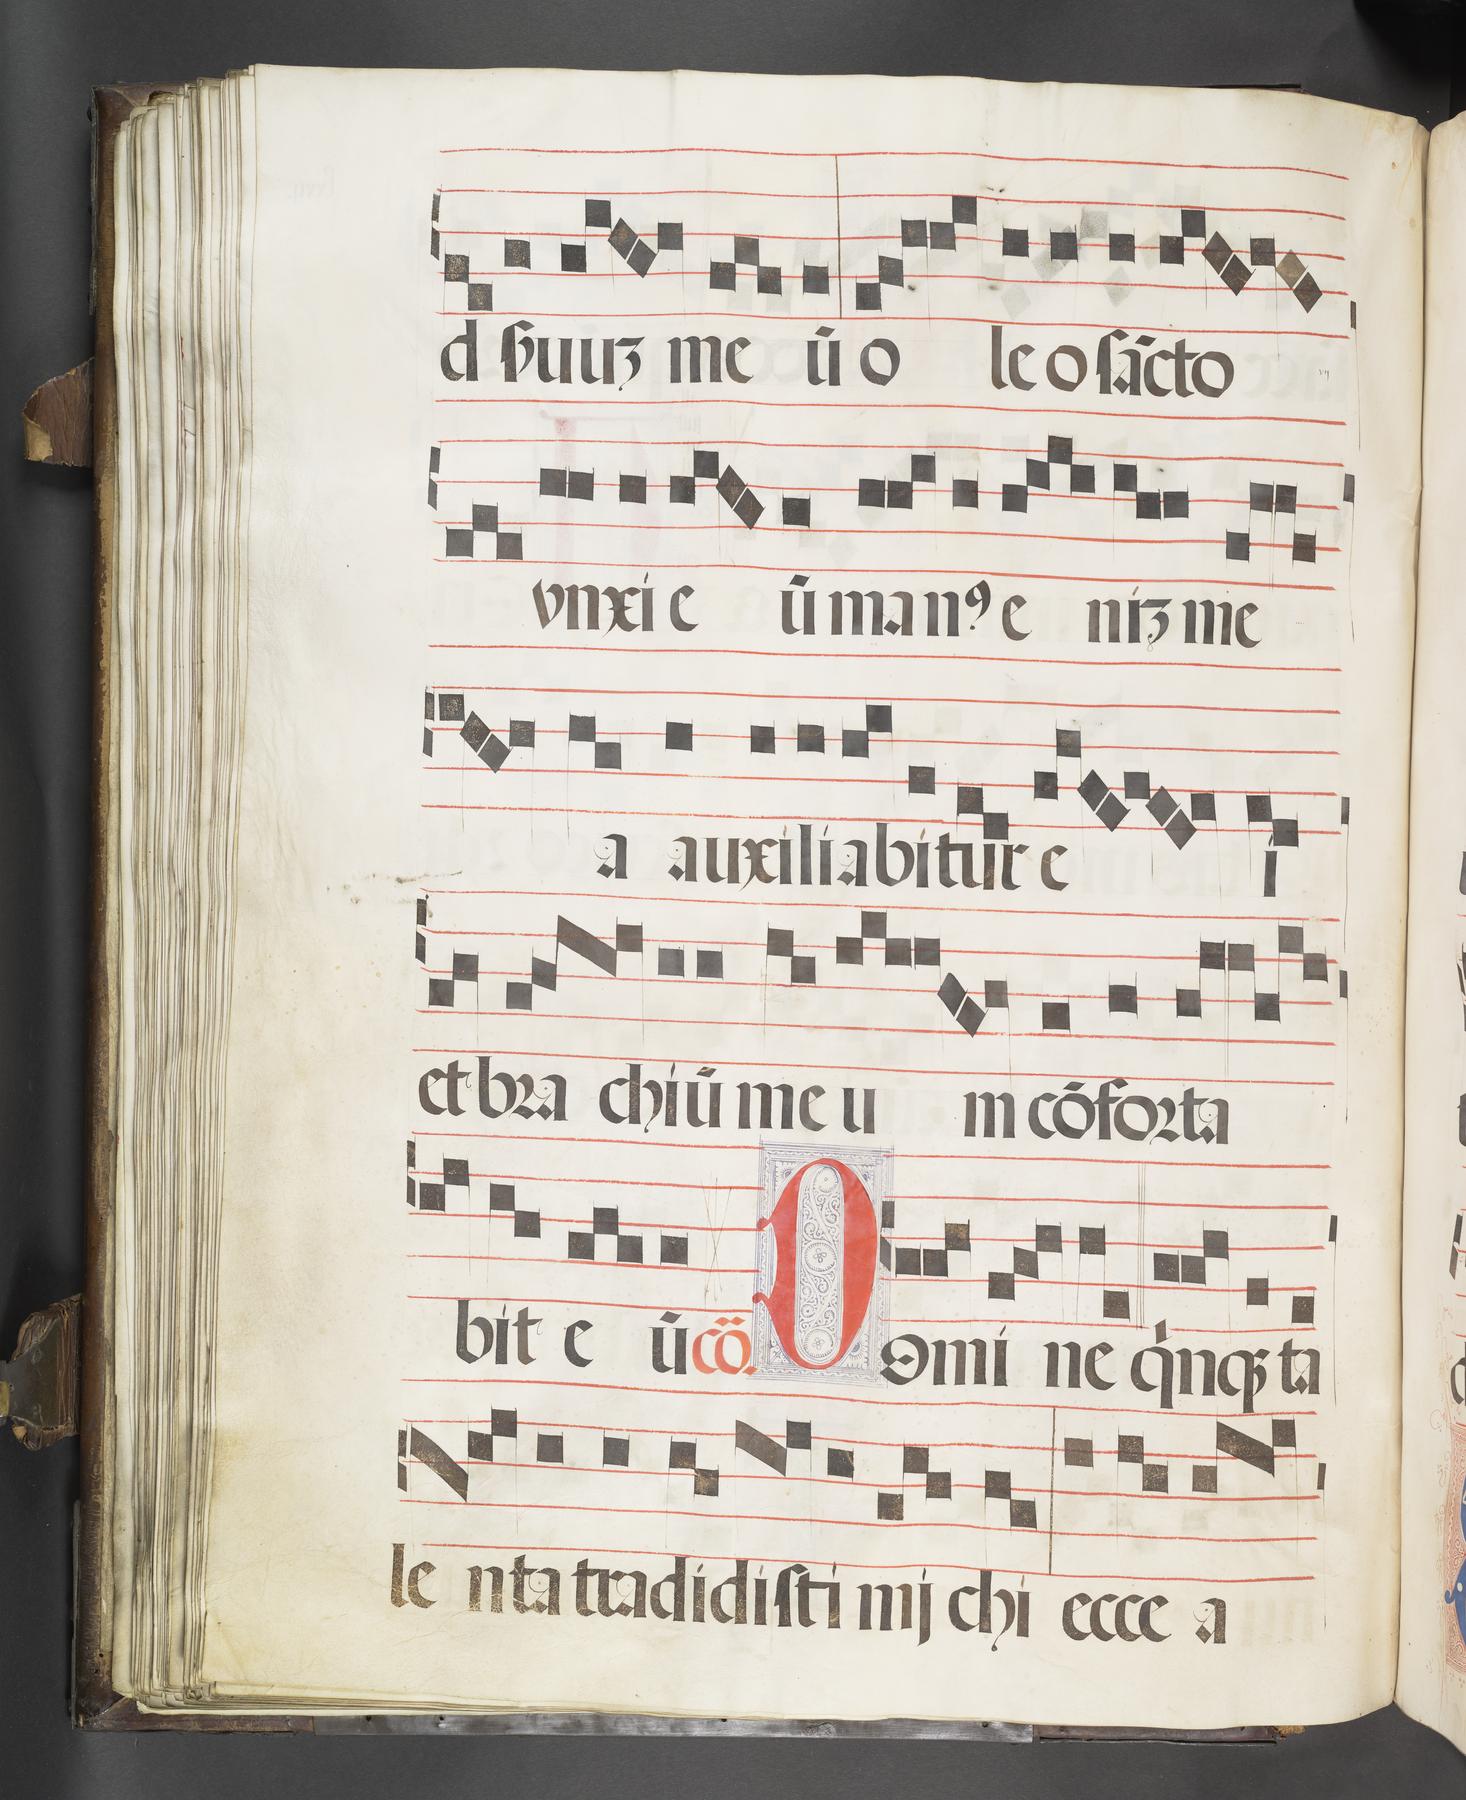 d s̉uuꝫ me ū o le o sāc̄to
vnxi e ū man⁹ e niꝫ me
a auxiliabitur e i
et bꝛa chiū me u m cōfoꝛta
bit e ū cō. Domi ne q̇nqꝫ ta
le nta tradidisti mj chi ecce a